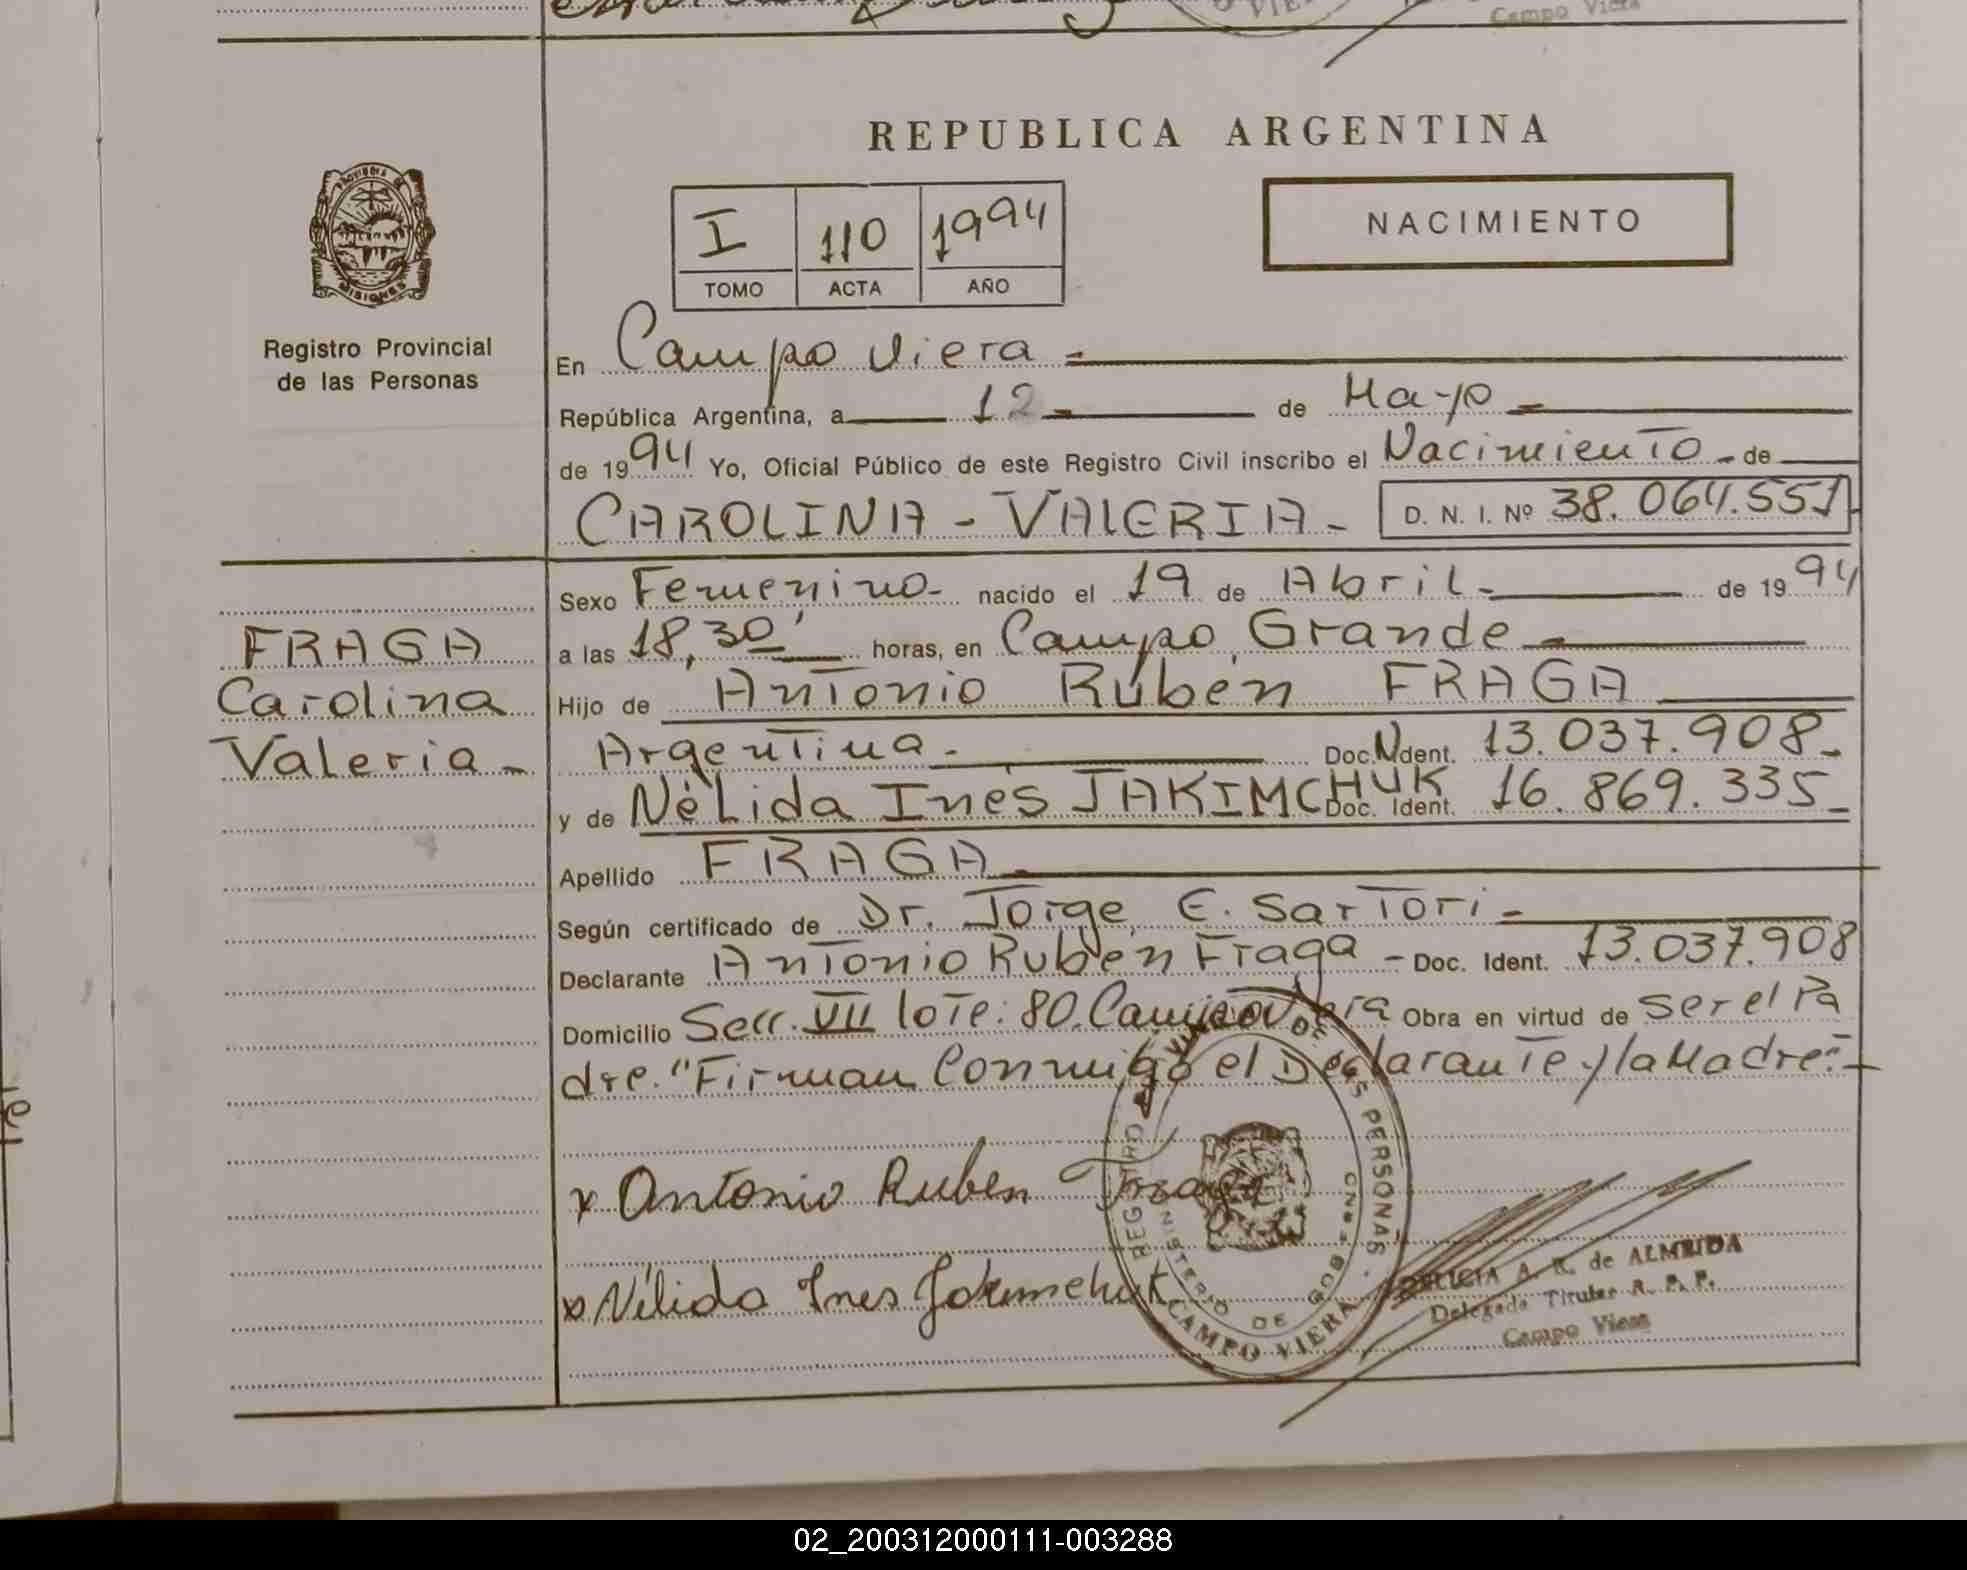 Campo Viera
REPUBLICA ARGENTINA
PROVINCIA DE
MISIONES
I 110 1994
TOMO ACTA AÑO
NACIMIENTO
Registro Provincial
de las Personas
En Campo Viera
República Argentina, a 12 de Mayo
de 1994 Yo, Oficial Público de este Registro Civil inscribo el Nacimiento de
CAROLINA - VALERIA - D. N. I. Nº 38.064.551
FRAGA
Carolina
Valeria -
Sexo Femenino - nacido el 19 de Abril - de 1994
a las 18,30' horas, en Campo Grande
Hijo de Antonio Rubén FRAGA
Argentina - Doc. Ident. 13.037.908 -
y de Nélida Inés JAKIMCHUK Doc. Ident. 16.869.335 -
Apellido FRAGA
Según certificado de Dr. Jorge E. Sartori -
Declarante Antonio Rubén Fraga - Doc. Ident. 13.037.908
Domicilio Secc. VII lote: 80. Campo Viera Obra en virtud de ser el Pa
dre. "Firman Conmigo el Declarante y la Madre." -
x Antonio Ruben Fraga
x Nélida Ines Jakimchuk
REGISTRO DE LAS PERSONAS
MINISTERIO DE GOB
CAMPO VIERA
A. R. de ALMEIDA
Delegada Titular R. P. P.
Campo Viera
02_200312000111-003288